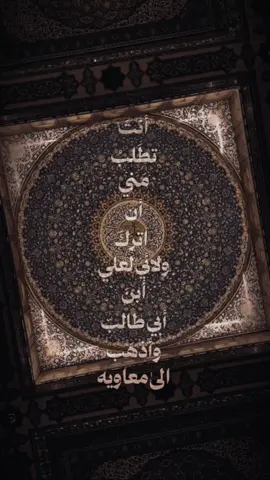 أنت
تطلب
مني
أن
اترك
ولائي لعلي
أبن
أبي طالب
وأذهب
الى معاويه